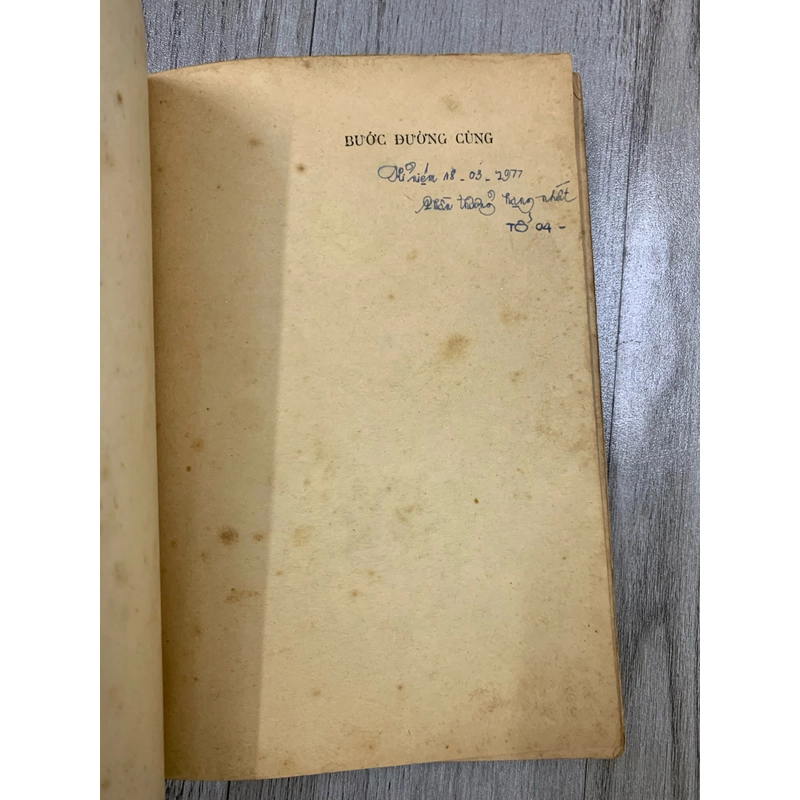 BƯỚC ĐƯỜNG CÙNG
Kỉ niệm 18 - 03 - 2977
Phần thưởng hạng nhất
TỔ 04 -